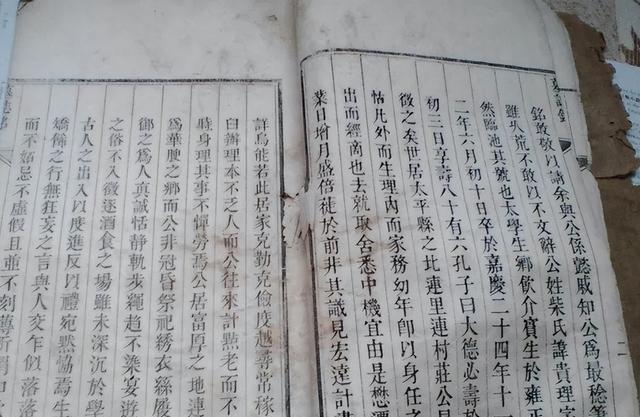 墓誌銘
銘敢敬以請余與公係懿戚知公為最稔
雖久荒不敢以不文辭公姓柴氏諱貴理
然臨池其號也太學生鄉飲介賓生於雍正
二年六月初十日卒於嘉慶二十四年十
初三日享壽八十有六孔子曰大德必壽於
徵之矣世居太平縣之北連里連村莊公
怙凡外而生理內而家務幼年即以身任之
出而經商也去就取舍悉中機宜由是懋
業日增月盛倍徒於前非其識見宏達計
二
詳焉能若此居家克勤克儉度越尋常稼
臼辦理本不乏人而公往來計點老而不
時身理其事不憚勞焉公居富厚之地連
為華腴之鄉而公非冠昏祭祀綉衣絲履
御之為人真誠恬靜軌步繩趨不染宴遊
之俗不入徵逐酒食之場雖未深沉於學
古人之出入以度進反以禮宛焉生
矯之行無狂妄之言與人交乍似落落
而不妬忌不虛假且並不刻薄所謂
墓誌銘